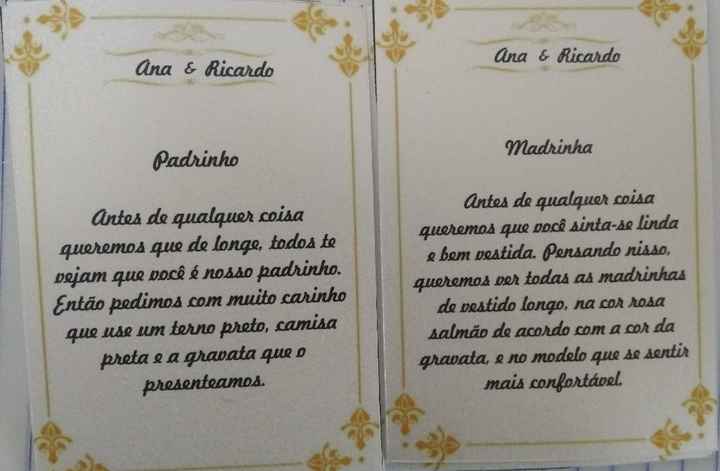 Ana & Ricardo
Padrinho
Antes de qualquer coisa
queremos que de longe, todos te
vejam que você é nosso padrinho.
Então pedimos com muito carinho
que use um terno preto, camisa
preta e a gravata que o
presenteamos.
Ana & Ricardo
Madrinha
Antes de qualquer coisa
queremos que você sinta-se linda
e bem vestida. Pensando nisso,
queremos ver todas as madrinhas
de vestido longo, na cor rosa
salmão de acordo com a cor da
gravata, e no modelo que se sentir
mais confortável.